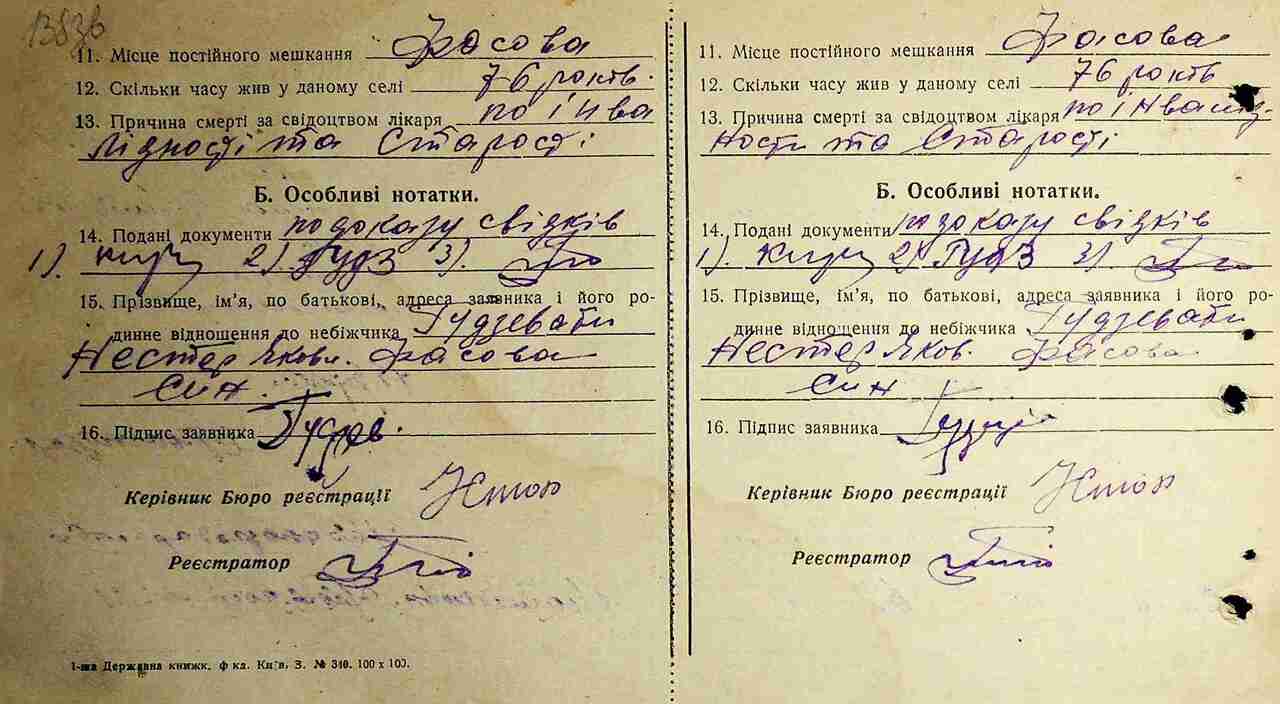 11. Місце постійного мешкання Фасова
12. Скільки часу жив у даному селі 76 років.
13. Причина смерті за свідоцтвом лікаря по інва
лідності та Старості
Б. Особливі нотатки.
14. Подані документи по доказу свідків
1). 2) Гудз 3).
15. Прізвище, ім'я, по батькові, адреса заявника і його ро-
динне відношення до небіжчика Гудзевати
Нестер Яков. Фасова
син.
16. Підпис заявника
Керівник Бюро реєстрації
Реєстратор
1-ша Державна книжк. ф ка. Київ. З. № 340. 100 х 100.
11. Місце постійного мешкання Фасова
12. Скільки часу жив у даному селі 76 років
13. Причина смерті за свідоцтвом лікаря по інвалід
ности та Старості
Б. Особливі нотатки.
14. Подані документи по доказу свідків
1). 2) Гудз 3)
15. Прізвище, ім'я, по батькові, адреса заявника і його ро-
динне відношення до небіжчика Гудзевати
Нестер Яков. Фасова
син
16. Підпис заявника
Керівник Бюро реєстрації
Реєстратор